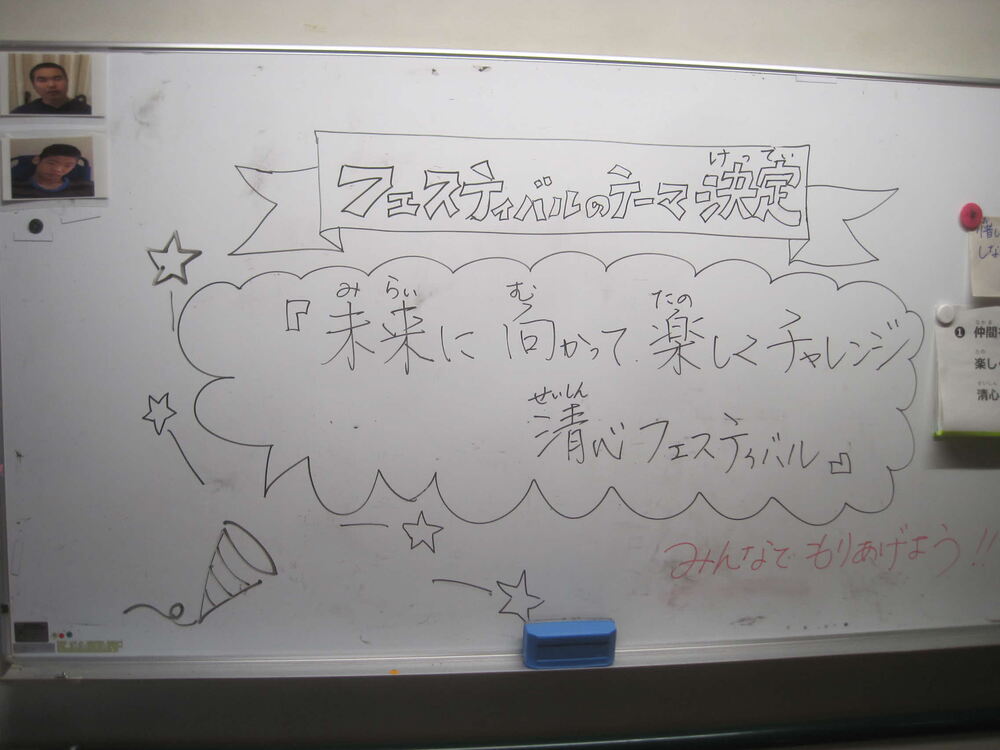 けってい
フェスティバルのテーマ決定
み らい む たの
『未来に向かって楽しくチャレンジ
せいしん
清心フェスティバル』
みんなでもりあげよう!!
しな
なかま
❶ 仲間
たの
楽し
せいしん
清心